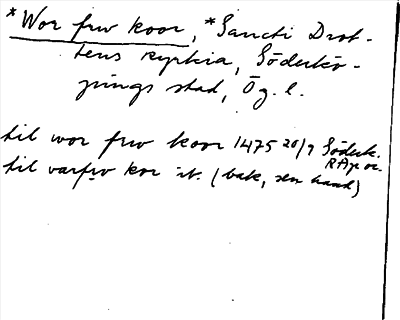 *Wor frw koor, *Sancti Drot-
tens kyrkia, Söderkö-
pings stad, Ög. l.
til wor frw koor 1475 20/9 Söderk.
RAp or.
til varfrv kor ib. (bak, sen hand)